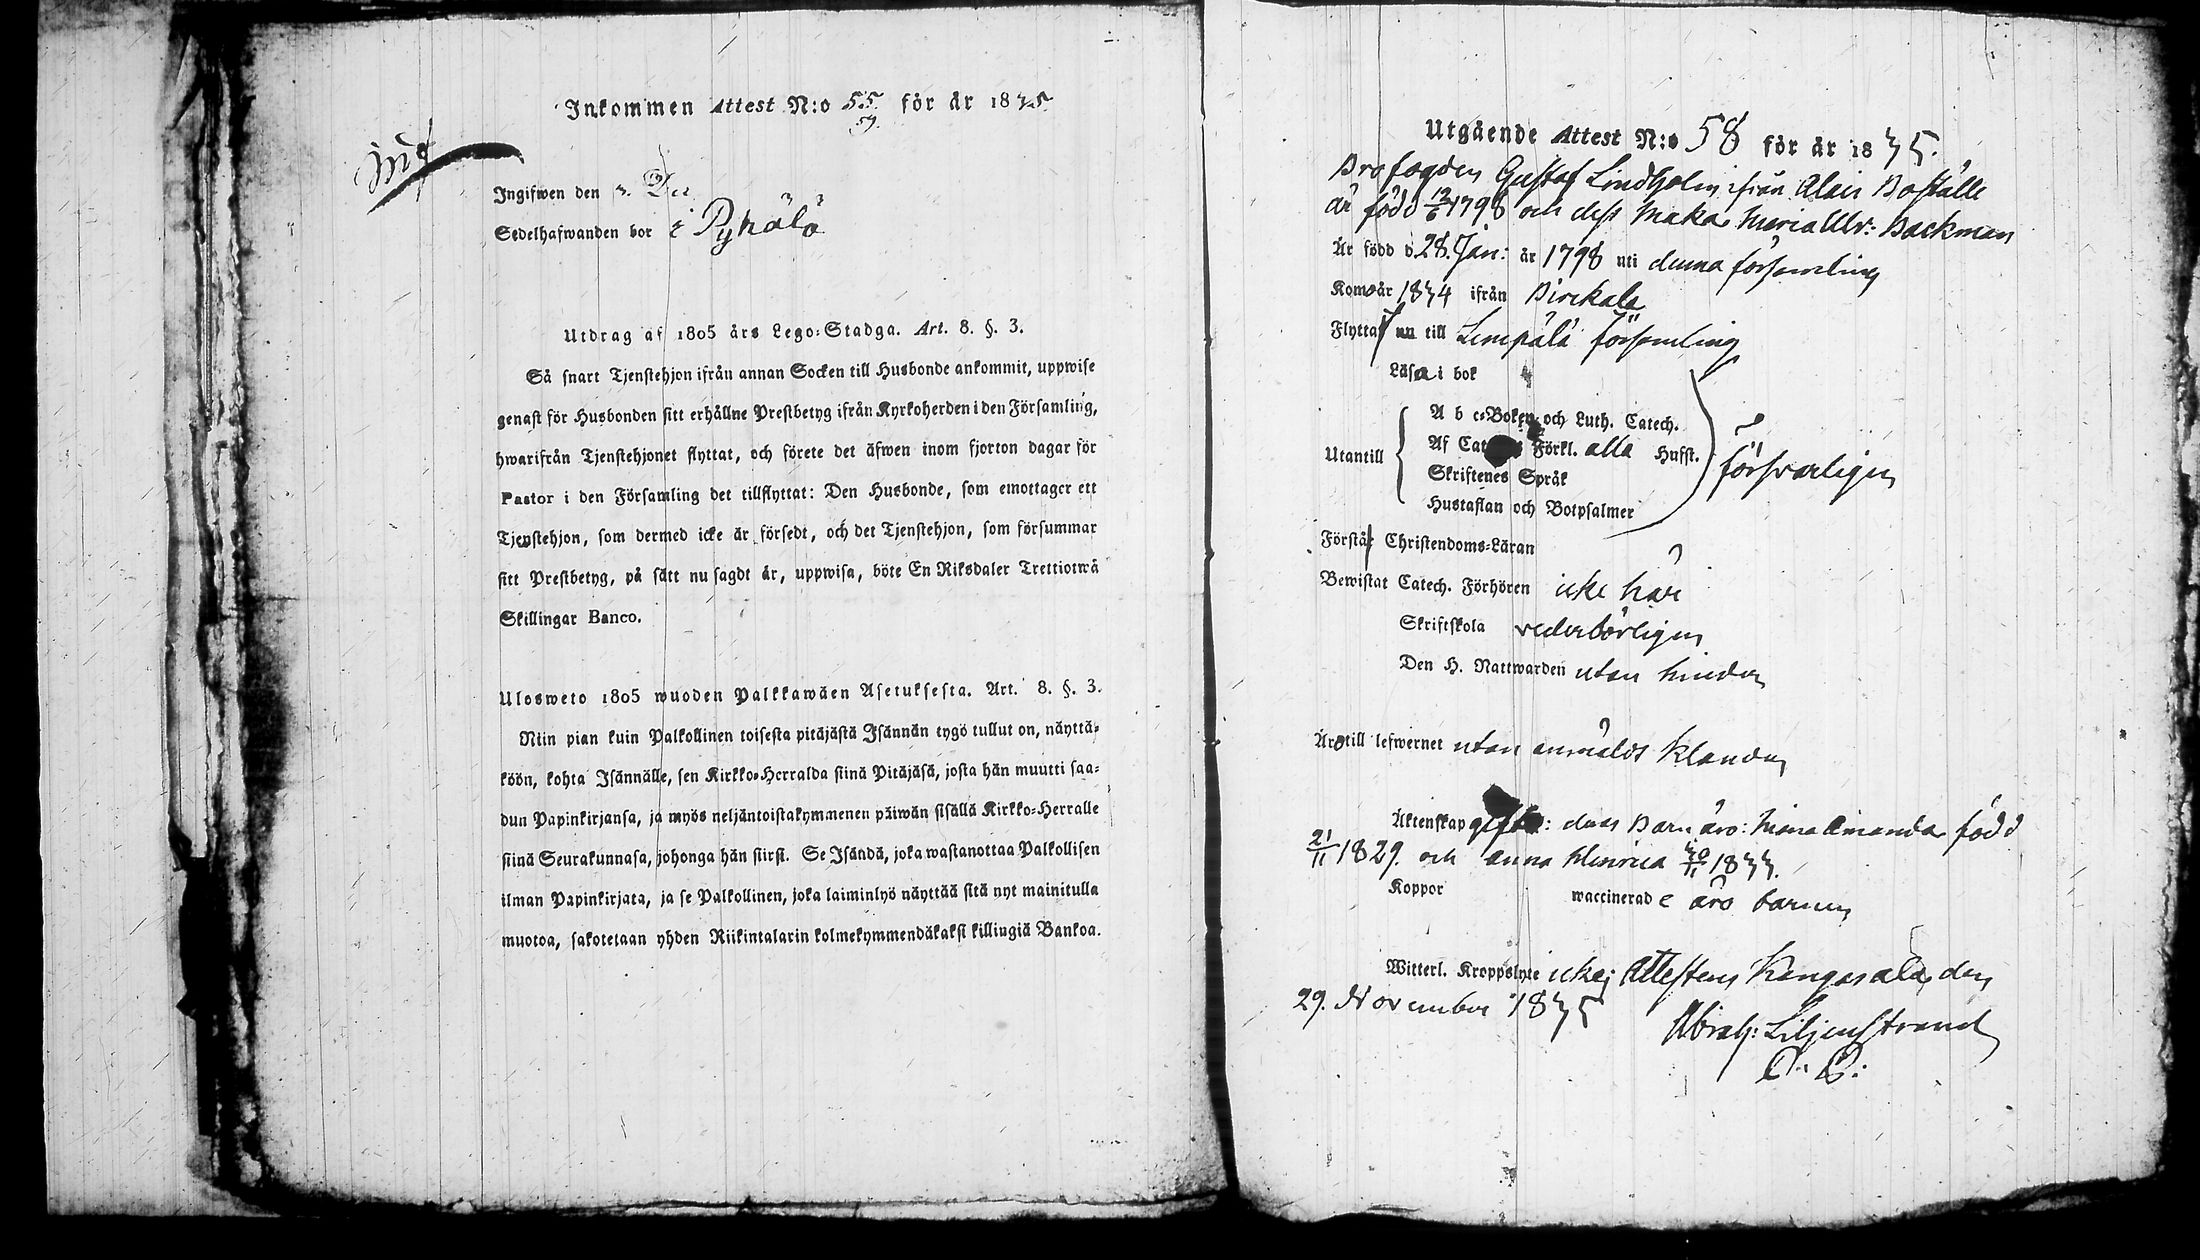 Inkommen Attest N:o 55 för år 1835
59.
inf
Ingifwen den 3. Dec
Sedelhafwanden bor i Pyhälö
Utdrag af 1805 års Lego-Stadga. Art. 8. §. 3.
Så snart Tjenstehjon ifrån annan Socken till Husbonde ankommit, uppwise
genast för Husbonden sitt erhållne Prestbetyg ifrån Kyrkoherden i den Församling,
hwarifrån Tjenstehjonet flyttat, och förete det äfwen inom fjorton dagar för
Pastor i den Församling det tillflyttat: Den Husbonde, som emottager ett
Tjenstehjon, som dermed icke är försedt, och det Tjenstehjon, som försummar
sitt Prestbetyg, på sätt nu sagdt är, uppwisa, böte En Riksdaler Trettiotwå
Skillingar Banco.
Ulosweto 1805 wuoden Palkkawäen Asetuksesta. Art. 8. §. 3.
Niin pian kuin Palkollinen toisesta pitäjästä Isännän tygö tullut on, näyttä-
köön, kohta Isännälle, sen Kirkko-Herralda siinä Pitäjäsä, josta hän muutti saa-
dun Papinkirjansa, ja myös neljäntoistakymmenen päiwän sisällä Kirkko-Herralle
siinä Seurakunnasa, johonga hän siirsi. Se Isändä, joka wastanottaa Palkollisen
ilman Papinkirjata, ja se Palkollinen, joka laiminlyö näyttää sitä nyt mainitulla
muotoa, sakotetaan yhden Riikintalarin kolmekymmendäkaksi killingiä Bankoa.
Utgående Attest N:o 58 för år 1835.
Brofogden Gustaf Lindholm ifrån Alais Boställe
är född 12/6 1798 och dess maka Maria Ulr: Backman
Är född d. 28. Jan: år 1798 uti denna församling
Komo år 1834 ifrån Birckala
Flytta nu till Lempälä församling
Läsa i bok
A b c-Boken och Luth. Catech.
Utantill Af Cat Förkl. alla Hufst. försvarligen
Skriftenes Språk
Hustaflan och Botpsalmer
Förstå Christendoms-Läran
Bewistat Catech. Förhören icke här
Skriftskola vederbörligen
Den H. Nattwarden utan hinder
Äro till lefwernet utan anmäldt klander
Äktenskap gifte: deras Barn äro: Mina Amanda född
21/11 1829. och Anna Henrica 30/1 1833.
Koppor waccinerade äro barnen
Witterl. Kroppslyte icke; Attesteras Kangasala den
29. November 1835
Abrah: Liljenstrand
C. P.: